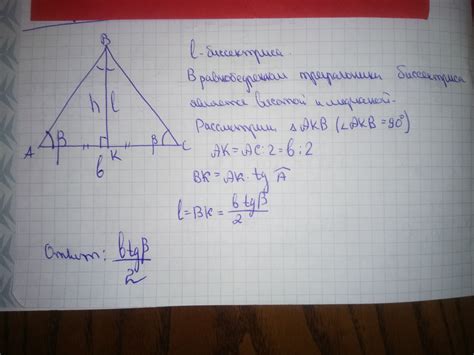 B
l - биссектриса.
В равнобедренном треугольнике биссектриса
является высотой и медианой.
Рассмотрим △AKB (∠AKB = 90°)
AK = AC : 2 = b : 2
BK = AK · tg A
l = BK = b tg β / 2
h l
A β β C
b K
Ответ: b tg β / 2